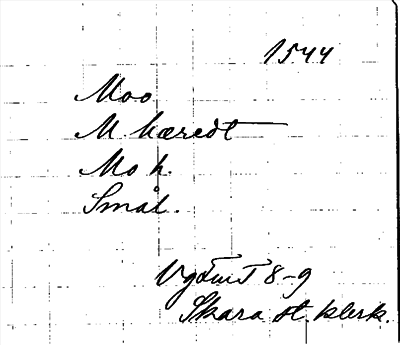 1544
Moo
M hæredt
Mo h.
Smål.
VgFmT 8-9
Skara st. klerk.